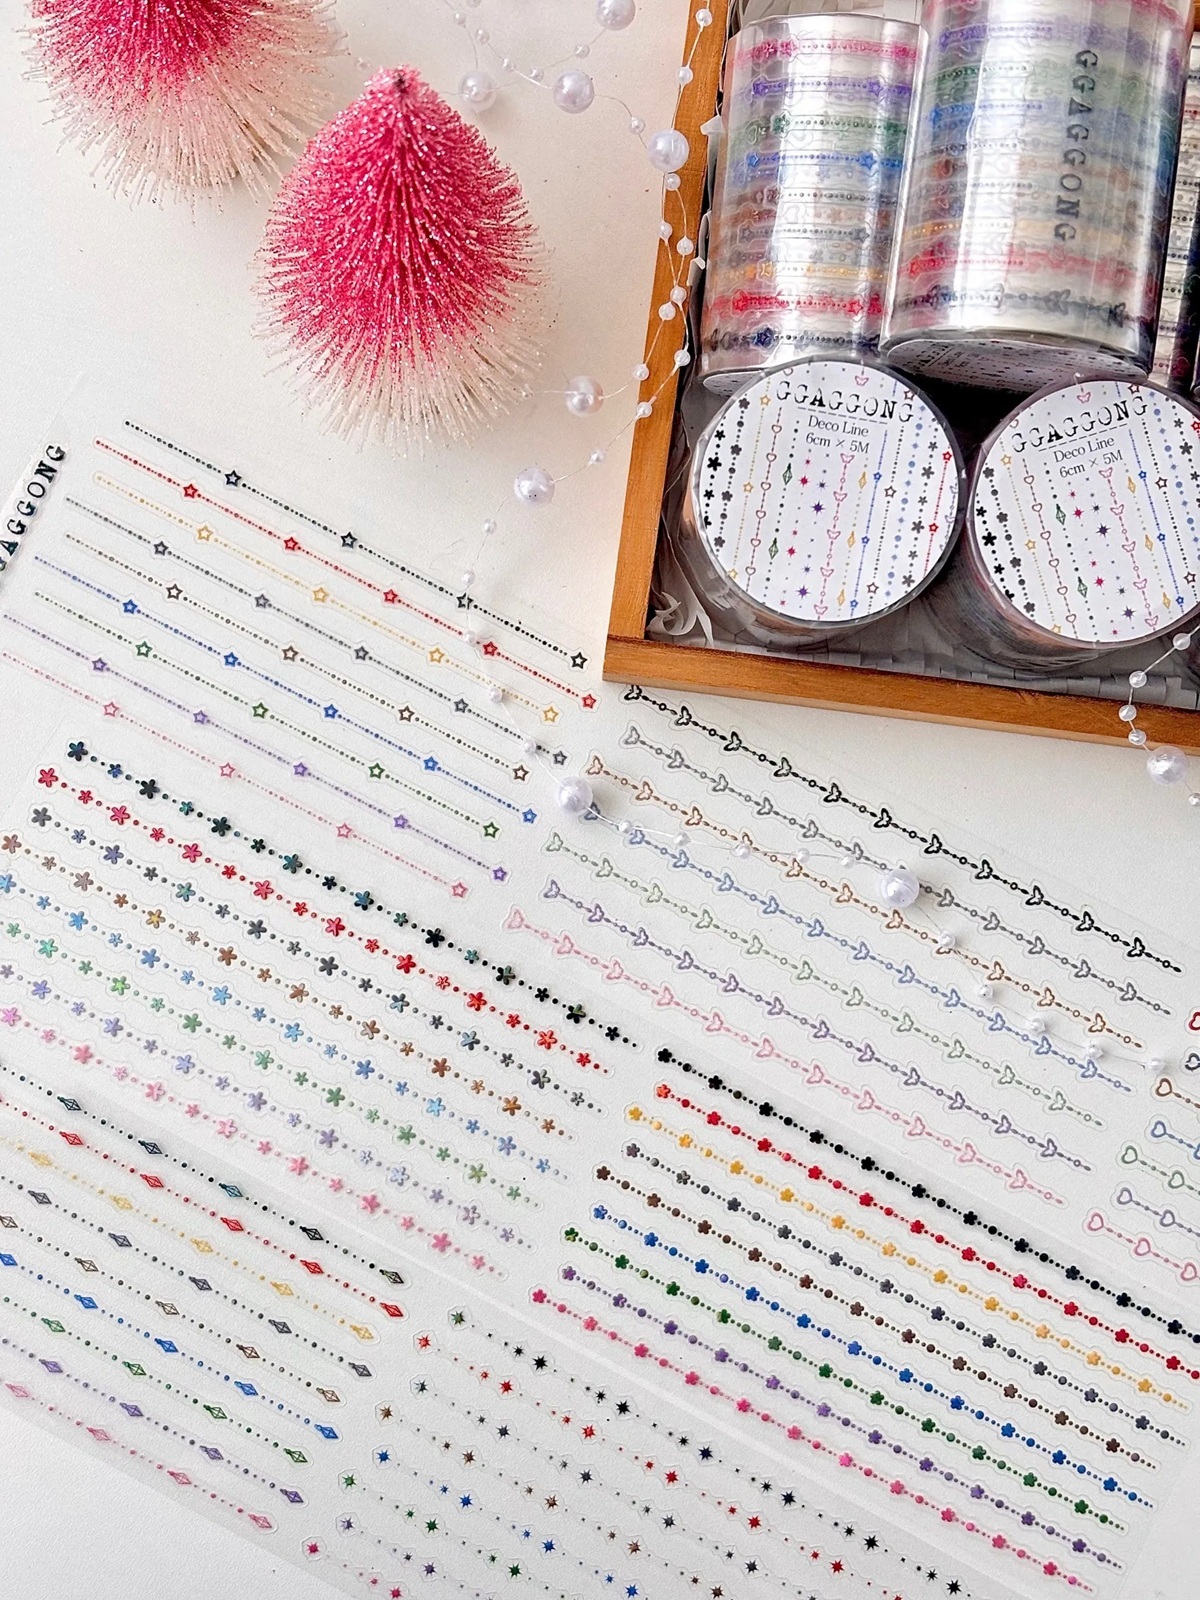 GGAGGONG
GGAGGONG
Deco Line
6cm × 5M
GGAGGONG
Deco Line
6cm × 5M
GGAGGONG